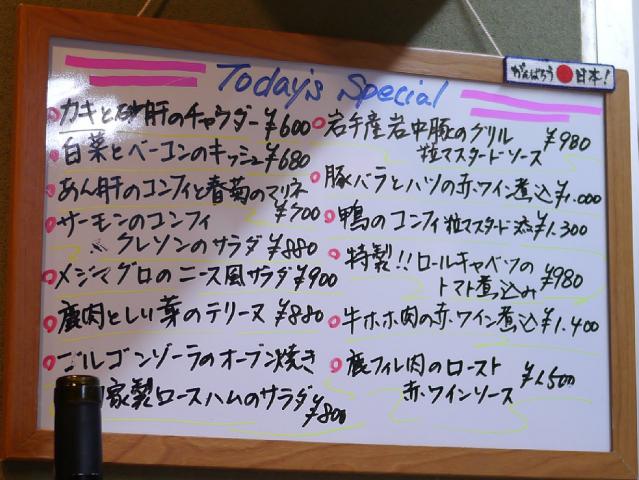 がんばろう日本!
Today's Special
カキと砂肝のチャウダー ¥600
白菜とベーコンのキッシュ ¥680
あん肝のコンフィと春菊のマリネ
¥700
サーモンのコンフィ
クレソンのサラダ ¥880
メジマグロのニース風サラダ ¥900
鹿肉としい茸のテリーヌ ¥880
ゴルゴンゾーラのオーブン焼き
家製ロースハムのサラダ ¥800
岩手産岩中豚のグリル ¥980
粒マスタードソース
豚バラとハツの赤ワイン煮込 ¥1.000
鴨のコンフィ粒マスタード ¥1.300
特製!!ロールキャベツの
トマト煮っ込み ¥980
牛ホホ肉の赤ワイン煮込 ¥1.400
鹿フィレ肉のロースト ¥1.500
赤ワインソース